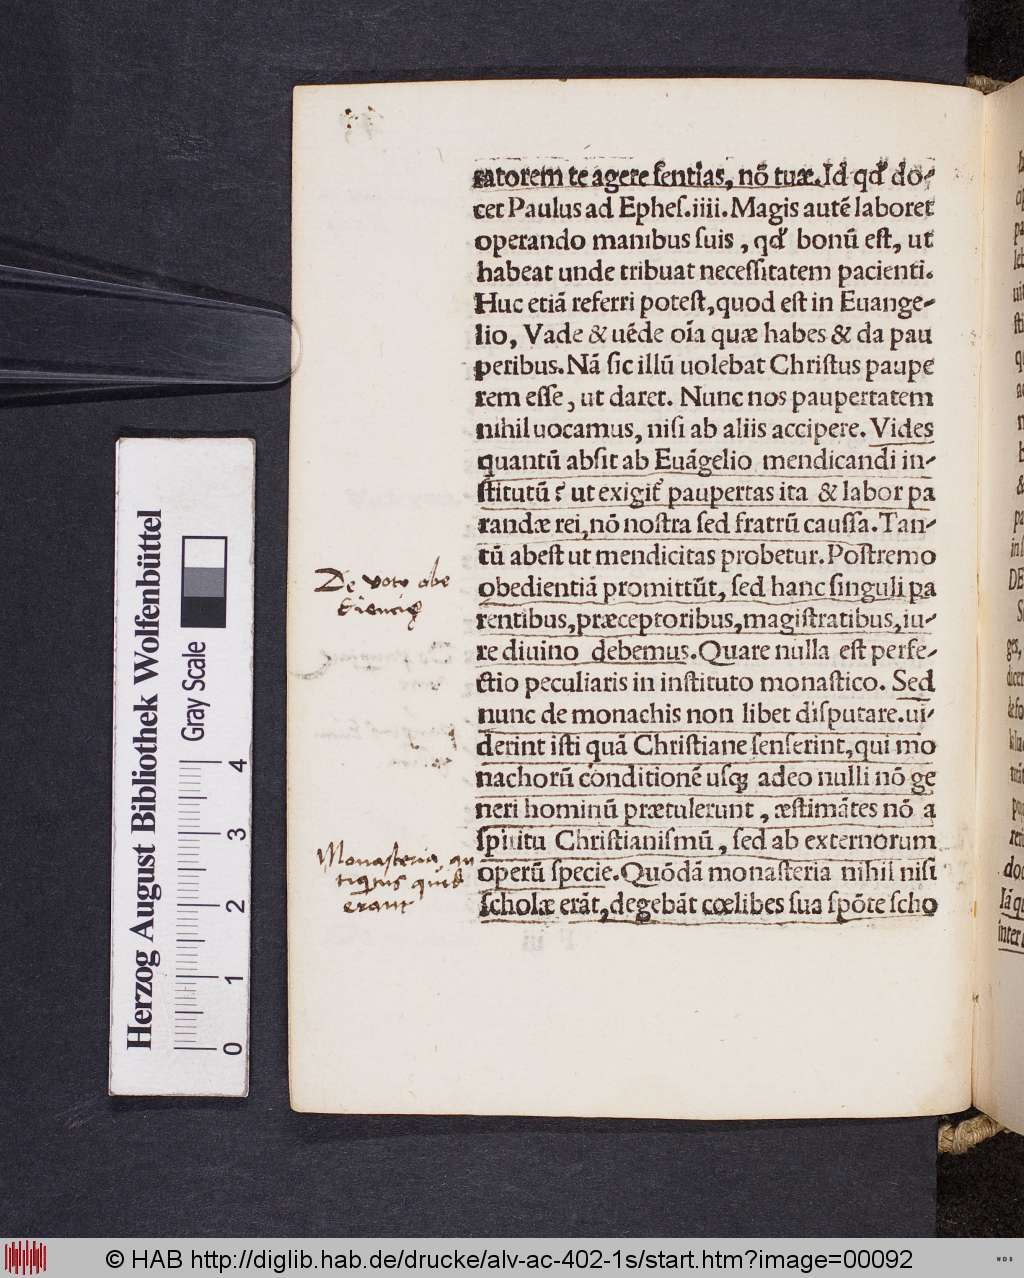 ratorem te agere sentias, nō tuæ. Id qđ do-
cet Paulus ad Ephes. iiii. Magis autē laboret
operando manibus suis, qđ bonū est, ut
habeat unde tribuat necessitatem pacienti.
Huc etiā referri potest, quod est in Euange-
lio, Vade & uēde oīa quæ habes & da pau
peribus. Nā sic illū uolebat Christus paupe
rem esse, ut daret. Nunc nos paupertatem
nihil uocamus, nisi ab aliis accipere. Vides
quantū absit ab Euāgelio mendicandi in-
stitutū? ut exigit paupertas ita & labor pa
randæ rei, nō nostra sed fratrū caussa. Tan-
tū abest ut mendicitas probetur. Postremo
obedientiā promittūt, sed hanc singuli pa
rentibus, præceptoribus, magistratibus, iu-
re diuino debemus. Quare nulla est perfe-
ctio peculiaris in instituto monastico. Sed
nunc de monachis non libet disputare. ui-
derint isti quā Christiane senserint, qui mo
nachorū conditionē usqꝫ adeo nulli nō ge
neri hominū prætulerunt, æstimātes nō a
spiritu Christianismū, sed ab externorum
operū specie. Quōdā monasteria nihil nisi
scholæ erāt, degebāt cœlibes sua spōte scho
De voto obe
diencię
Monasteria an
tiqitus quid
erant
Herzog August Bibliothek Wolfenbüttel
Gray Scale
0 1 2 3 4
© HAB http://diglib.hab.de/drucke/alv-ac-402-1s/start.htm?image=00092